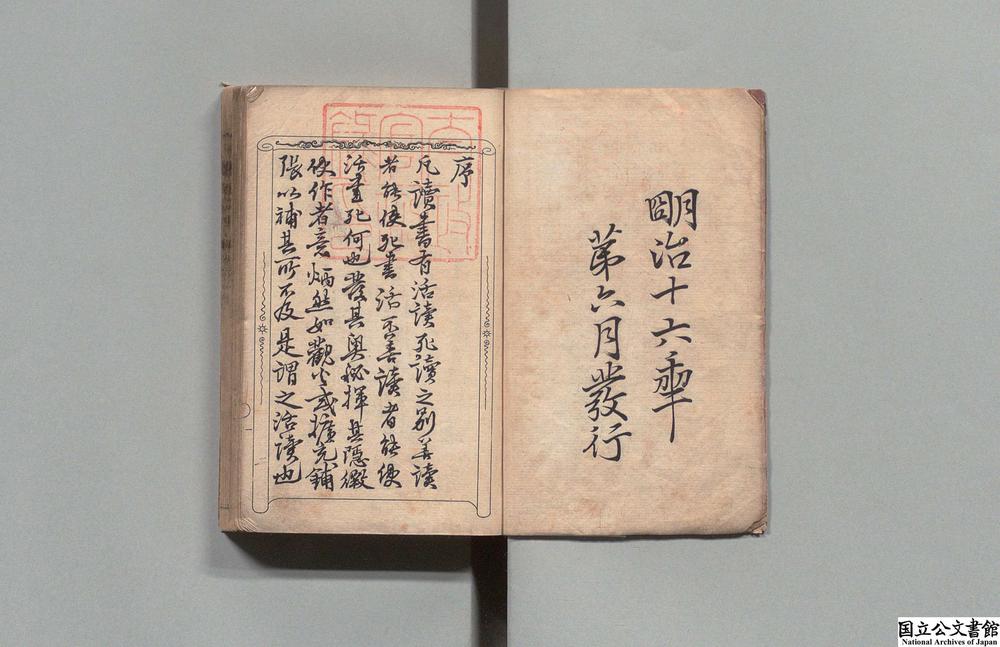 明治十六年
第六月發行
序
凡讀書有活讀死讀之別善讀
者能使死書活不善讀者能使
活書死何也發其奥秘揮其隱微
使作者意炳然如觀火或擴充鋪
張以補其所不及是謂之活讀也
太政
官文
國立公文書館
National Archives of Japan